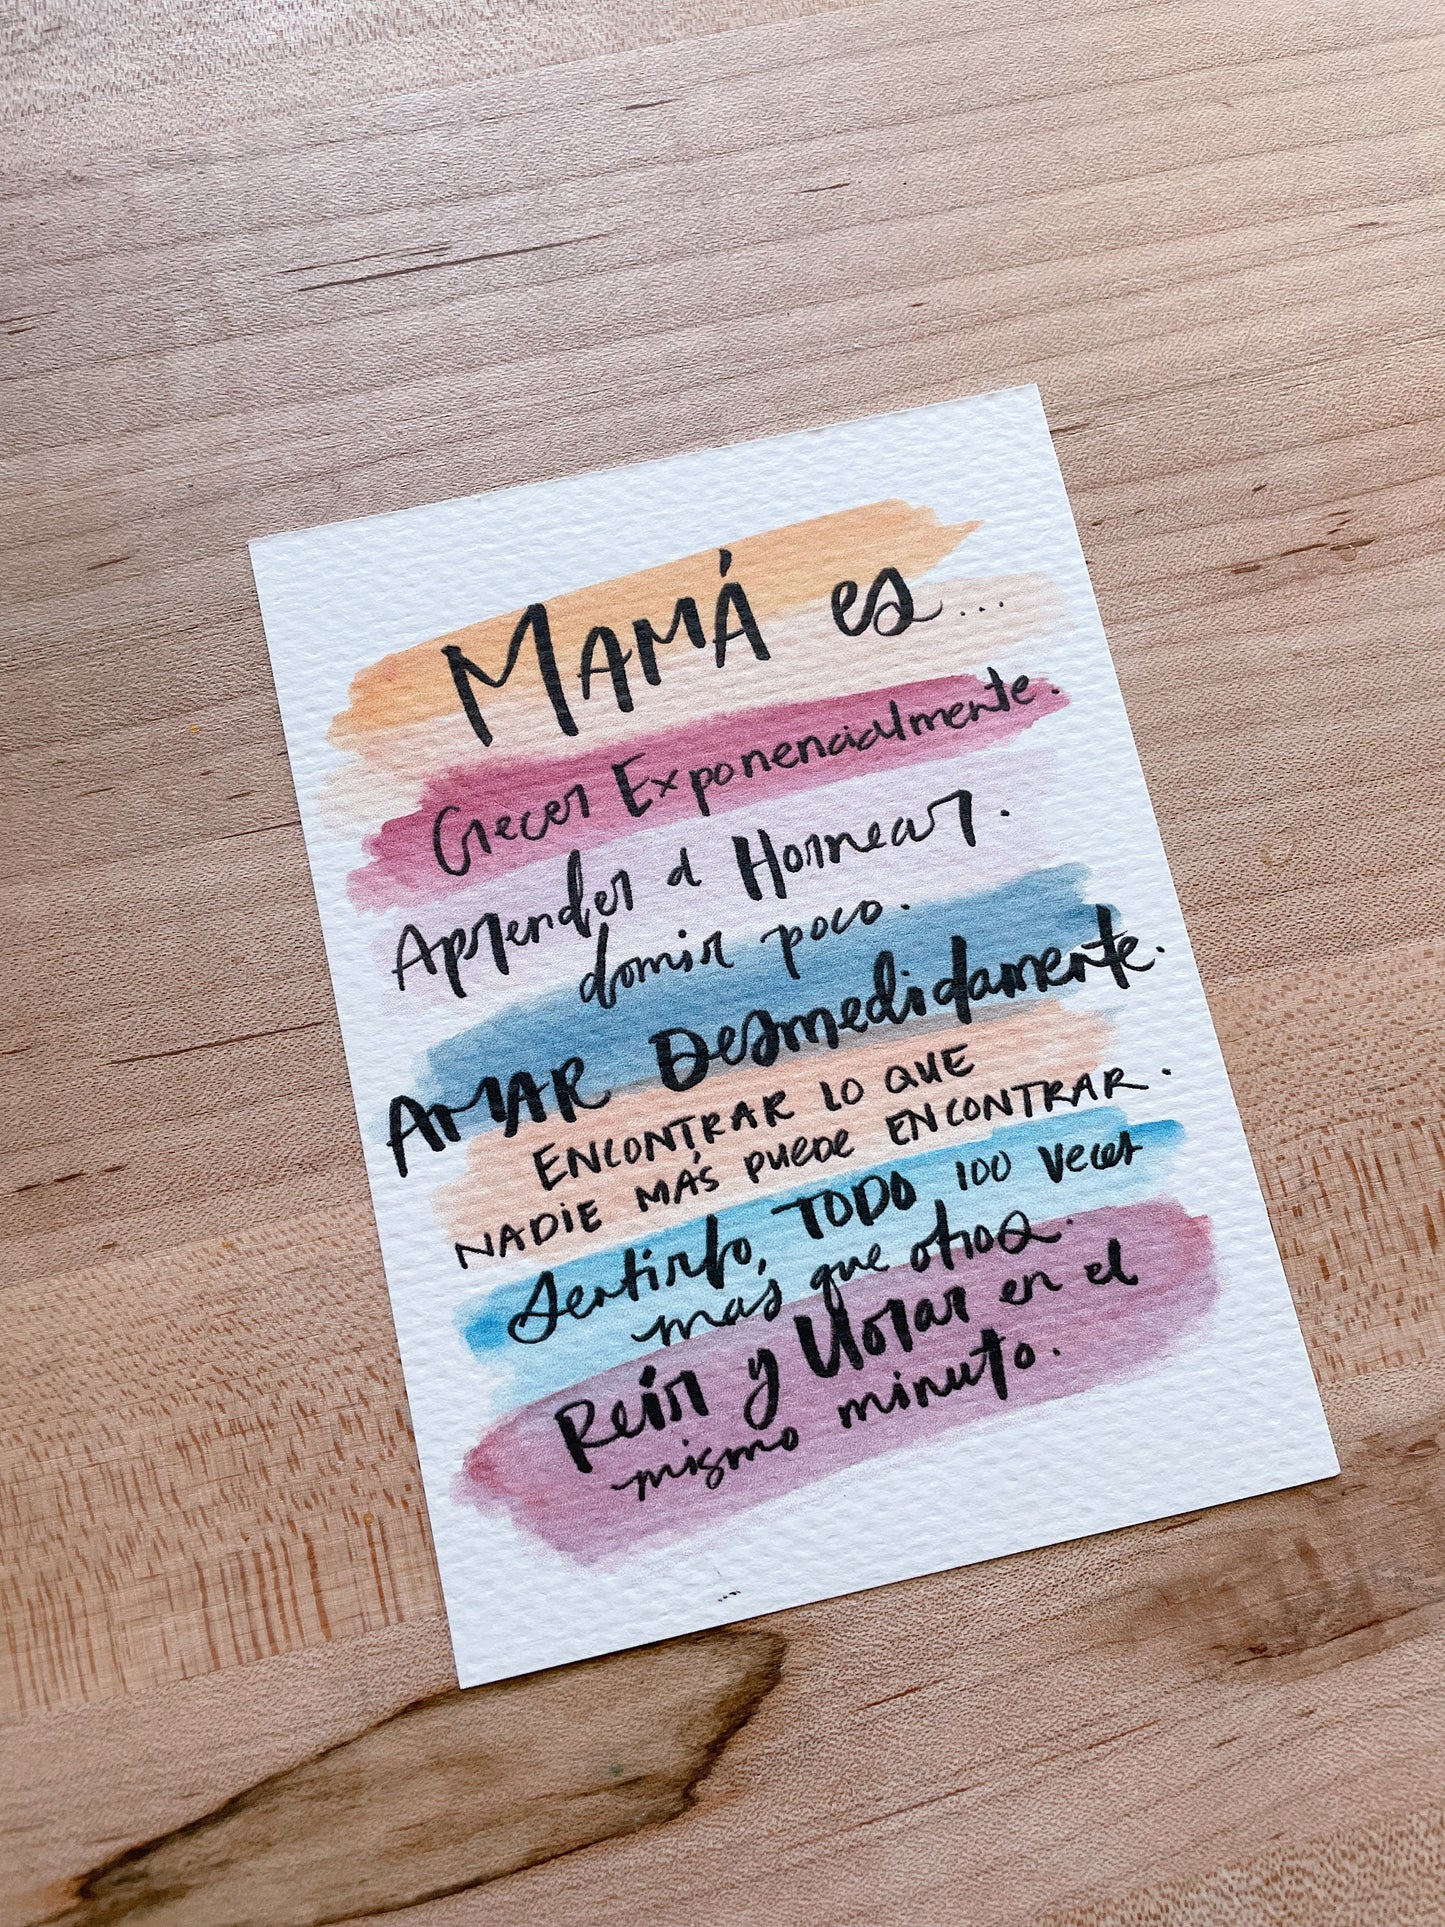 MAMÁ es...
Crecer Exponencialmente.
Aprender a Hornear.
domir poco.
AMAR Desmedidamente.
ENCONTRAR LO QUE
NADIE MÁS PUEDE ENCONTRAR.
Sentirlo, TODO 100 veces
mas que otros.
Reír y llorar en el
mismo minuto.